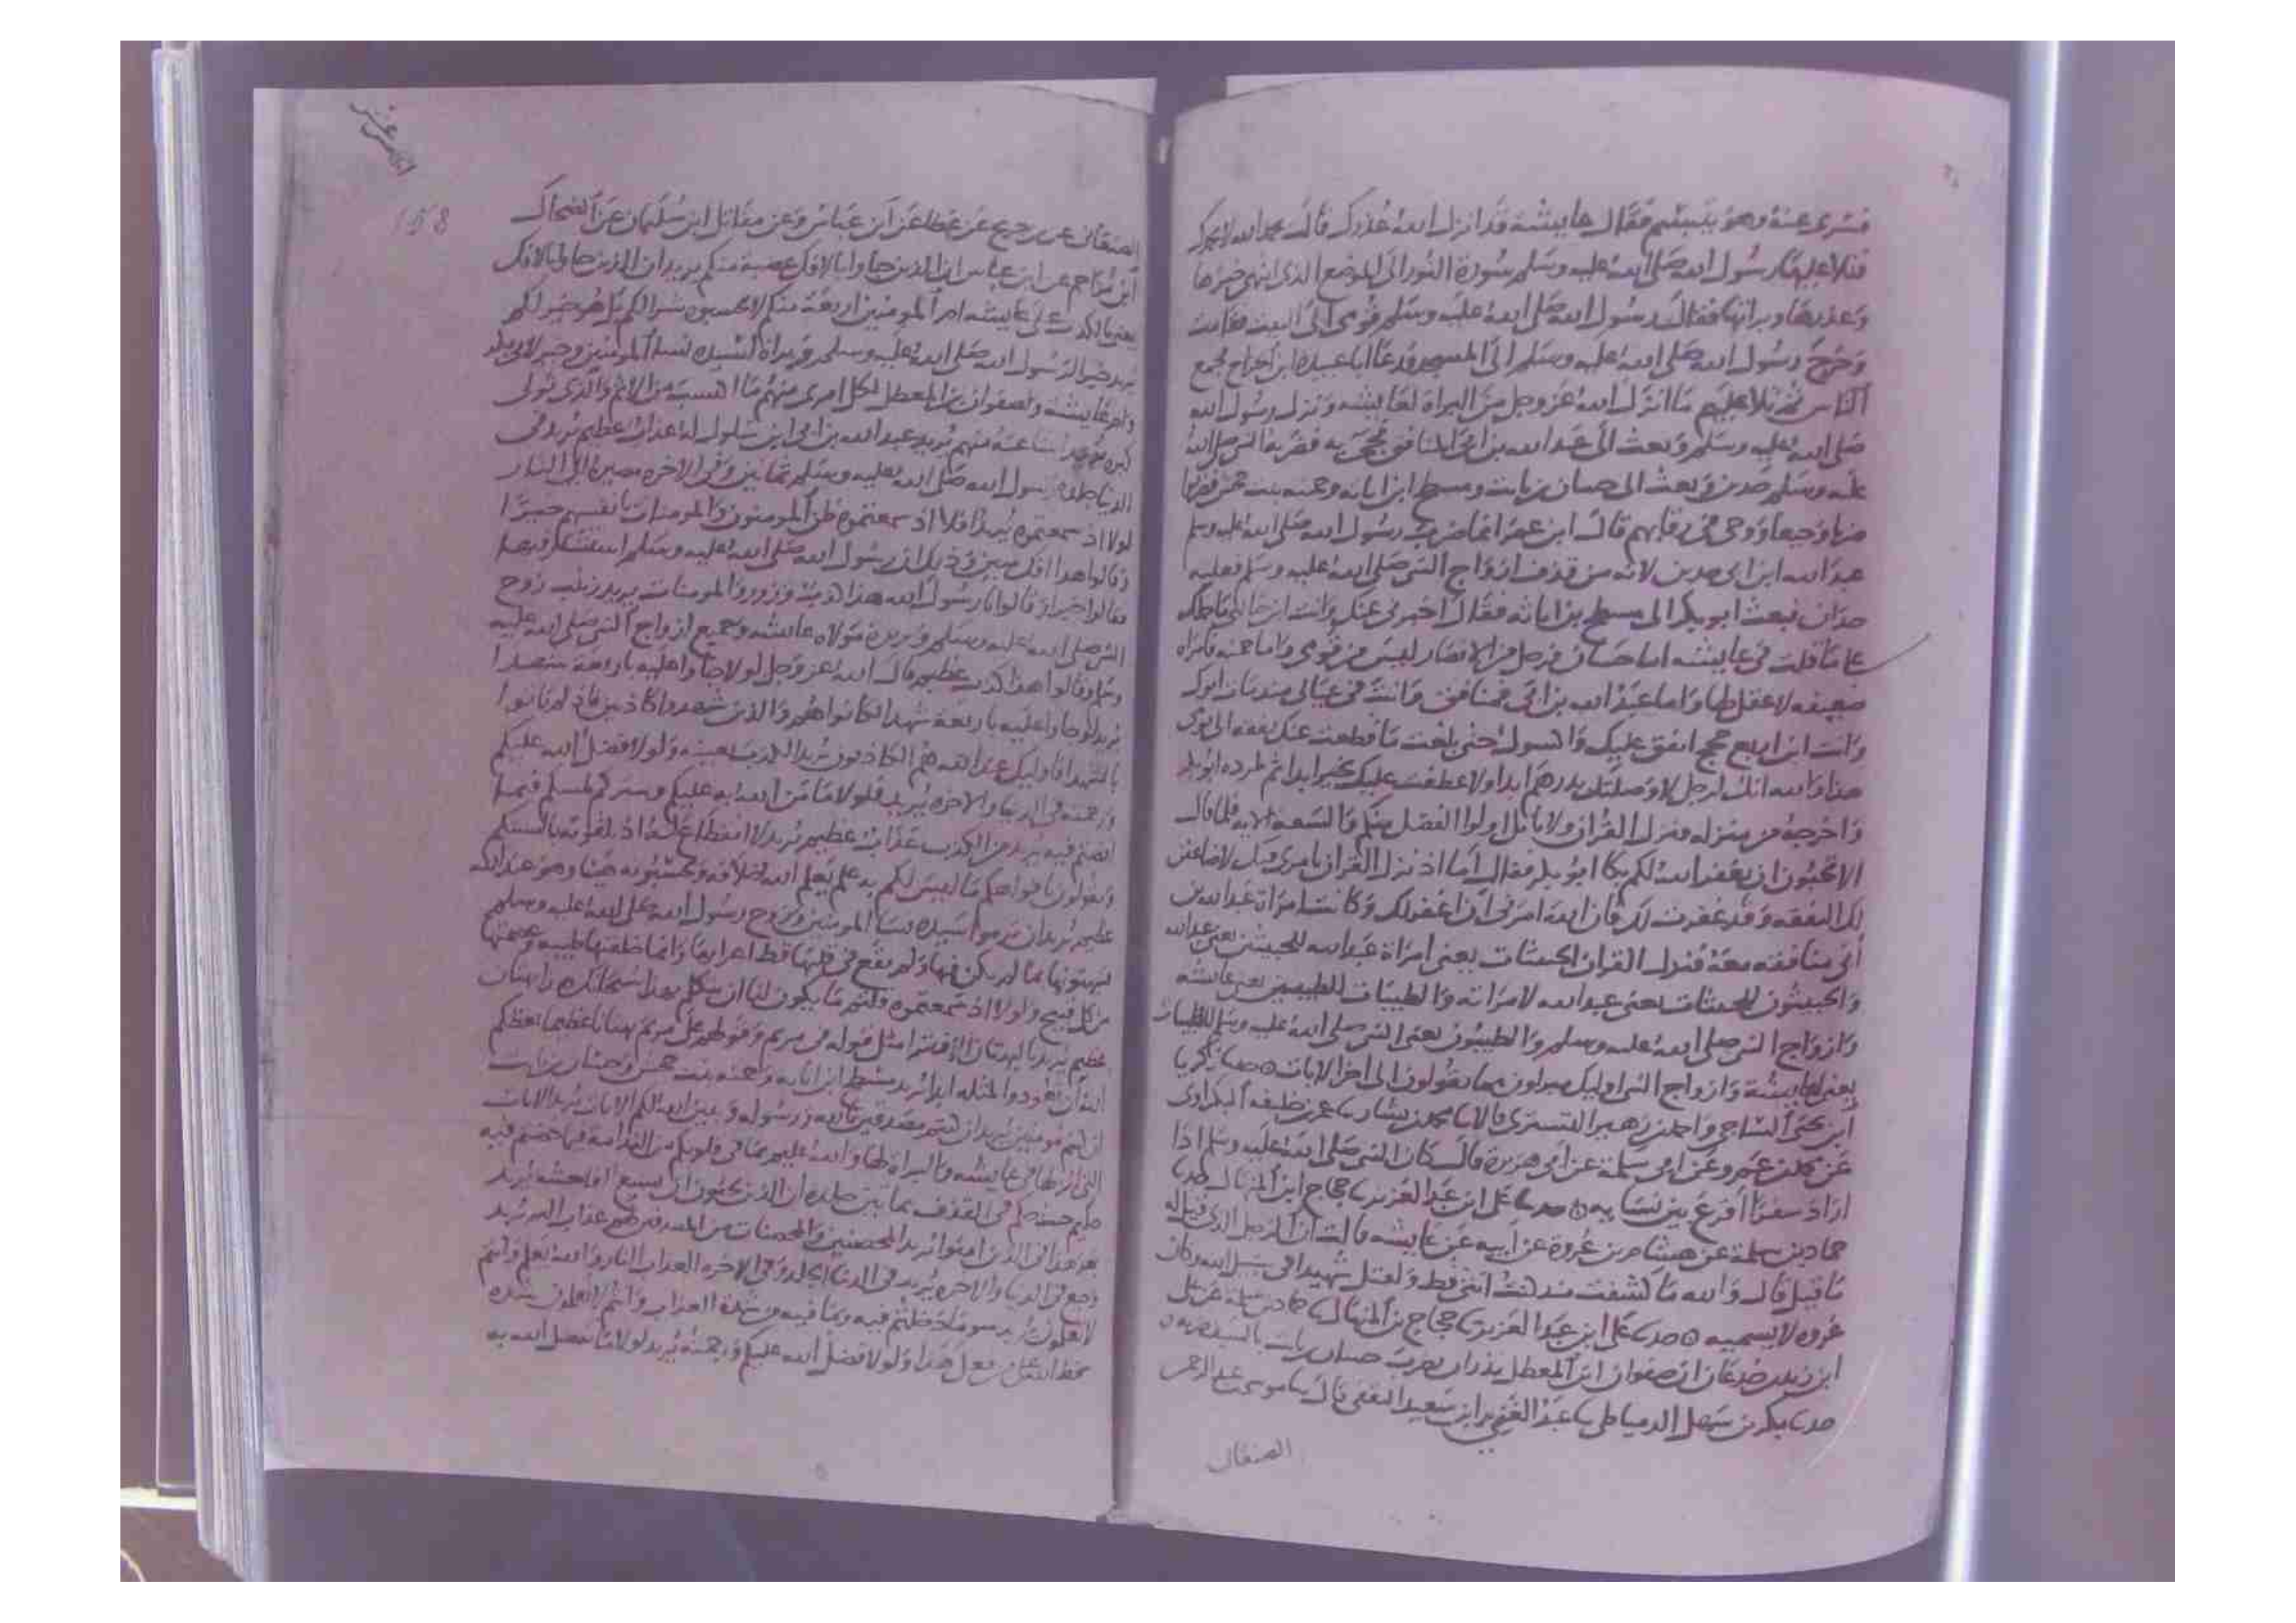 فسرى عنه وهو يتبسم فقال يا عايشة قد انزل الله عذرك قالت بحمد الله لا بحمدك
فتلا عليها رسول الله صلى الله عليه وسلم سورة النور الى الموضع الذى انتهى خبرها
وعذرها وبراتها فقال رسول الله صلى الله عليه وسلم قومى الى البيت فقامت
وخرج رسول الله صلى الله عليه وسلم الى المسجد فدعا ابا عبيدة ابن الجراح فجمع
الناس ثم تلا عليهم ما انزل الله عز وجل من البراة لعايشة ونزل رسول الله
صلى الله عليه وسلم وبعث الى عبد الله بن ابى المنافق فجى به فضربه النبى صلى الله
عليه وسلم حدين وبعث الى حسان بن ثابت ومسطح ابن اثاثه وحمنه بنت جحش فضربوا
ضربا وجيعا ووجى فى رقابهم قال ابن عمر انما ضرب رسول الله صلى الله عليه وسلم
عبد الله ابن ابى حدين لانه من قذف ازواج النبى صلى الله عليه وسلم فعليه
حدان فبعث ابو بكر الى مسطح بن اثاثه فقال اخبرنى عنك وانت ابن خالتى ما حملك
على ما قلت فى عايشة اما حسان فرجل من الانصار ليس من قومى واما حمنه فامراة
ضعيفه لا عقل لها واما عبد الله بن ابى فمنافق وانت فى عيالى منذ مات ابوك
وانت ابن اربع حجج انفق عليك واكسوك حتى بلغت ما قطعت عنك نفقه الى يومى
هذا والله انك لرجل لا وصلتك بدرهم ابدا ولا عطفت عليك بخير ابدا ثم طرده ابو بكر
واخرجه من منزله فنزل القران ولا ياتل اولوا الفضل منكم والسعة الايه فلما قال
الا تحبون ان يغفر الله لكم بكا ابو بكر فقال اما اذ نزل القران بامرى فيك لاضاعفن
لك النفقه وقد غفرت لك فان الله امرنى ان اغفر لك وكانت امراة عبد الله بن
ابى منافقه معه فنزل القران الخبيثات يعنى امراة عبد الله للخبيثين يعنى عبد الله
والخبيثون للخبيثات يعنى عبد الله لامراته والطيبات للطيبين يعنى عايشة
وازواج النبى صلى الله عليه وسلم والطيبون يعنى النبى صلى الله عليه وسلم للطيبات
يعنى لعايشة وازواج النبى اوليك مبراون مما يقولون الى اخر الايات حدثنا زكريا
ابن يحيى الساجى واحمد بن زهير التسترى قالا ثنا محمد بن بشار ثنا عمر بن خليفه البكراوى
عن محمد بن عمرو عن ابى سلمة عن ابى هريرة قال كان النبى صلى الله عليه وسلم اذا
اراد سفرا اقرع بين نسايه حدثنا على ابن عبد العزيز ثنا حجاج ابن المنهال حدثنا
حماد بن سلمة عن هشام بن عروة عن ابيه عن عايشة قالت ان الرجل الذى قيل له
ما قيل قال والله ما كشفت كنف انثى قط ولقتل شهيدا فى سبيل الله وكان
عروه لا يسميه حدثنا على ابن عبد العزيز ثنا حجاج بن المنهال ثنا حماد بن سلمة عن على
ابن زيد بن جدعان ان صفوان ابن المعطل نذر ان يضرب حسان بن ثابت بالسيف ضربه
حدثنا بكر بن سهل الدمياطى ثنا عبد الغنى ابن سعيد الثقفى قال ثنا موسى بن عبد الرحمن
الصنعانى
158
الصنعانى عن بن جريج عن عطا عن ابن عباس وعن مقاتل ابن سليمان عن الضحاك
ابن مزاحم عن ابن عباس ان الذين جاوا بالافك عصبة منكم يريد ان الذين جاوا بالافك
يعنى بالكذب على عايشة ام المومنين اربعة منكم لا تحسبوه شرا لكم بل هو خير لكم
يريد خيرا لرسول الله صلى الله عليه وسلم وبراة لسيدة نسا المومنين وخير لابى بكر
وام عايشة ولصفوان بن المعطل لكل امرى منهم ما اكتسب من الاثم والذى تولى
كبره منهم يريد عبد الله بن ابى ابن سلول له عذاب عظيم يريد فى
الدنيا جلده رسول الله صلى الله عليه وسلم ثمانين وفى الاخره مصيره الى النار
لولا اذ سمعتموه يريد افلا اذ سمعتموه ظن المومنون والمومنات بانفسهم خيرا
وقالوا هذا افك مبين وذلك ان رسول الله صلى الله عليه وسلم استشار فيها
فقالوا خيرا وقالوا يا رسول الله هذا كذب وزور والمومنات يريد زينب زوج
النبى صلى الله عليه وسلم وبريرة مولاة عايشه وجميع ازواج النبى صلى الله عليه
وسلم وقالوا هذا كذب عظيم قال الله عز وجل لولا جاوا عليه باربعة شهدا
يريد لو جاوا عليه باربعة شهدا لكانوا هم والذين شهدوا كاذبين فاذ لم ياتوا
بالشهدا فاوليك عند الله هم الكاذبون يريد الكذب بعينه ولولا فضل الله عليكم
ورحمته فى الدنيا والاخره يريد فلولا ما من الله به عليكم وستركم لمسكم فيما
افضتم فيه يريد من الكذب عذاب عظيم يريد لا انقطاع له اذ تلقونه بالسنتكم
وتقولون بافواهكم ما ليس لكم به علم يعلم الله خلافه وتحسبونه هينا وهو عند الله
عظيم يريد ان ترموا سيدة نسا المومنين وزوج رسول الله صلى الله عليه وسلم
فتبهتونها بما لم يكن فيها ولم يقع فى قلبها قط اعرابها وانما خلقتها طيبه وعصمتها
من كل قبيح ولولا اذ سمعتموه قلتم ما يكون لنا ان نتكلم بهذا سبحانك بهتان
عظيم يريد بالبهتان الافترا مثل قوله فى مريم وقولهم على مريم بهتانا عظيما يعظكم
الله ان تعودوا لمثله ابدا يريد مسطح ابن اثاثه وحمنه بنت جحش وحسان بن ثابت
ان كنتم مومنين يريد ان كنتم مصدقين بالله ورسوله ويبين الله لكم الايات يريد الايات
التى انزلها فى عايشه والبراة لها والله عليم بما فى قلوبكم من الندامة فيما خضتم فيه
حكيم حيث حكم فى القذف ثمانين جلده ان الذين يحبون ان تشيع الفاحشه يريد
بعد هذا فى الذين امنوا يريد المحصنين والمحصنات من المصدقين لهم عذاب اليم يريد
وجع فى الدنيا والاخره يريد فى الدنيا الجلد وفى الاخره العذاب النار والله يعلم وانتم
لا تعلمون يريد سو ما دخلتم فيه وما فيه من شدة العذاب وانتم لا تعلمون شده
سخط الله على من فعل هذا ولولا فضل الله عليكم ورحمته يريد لولا ما تفضل الله به